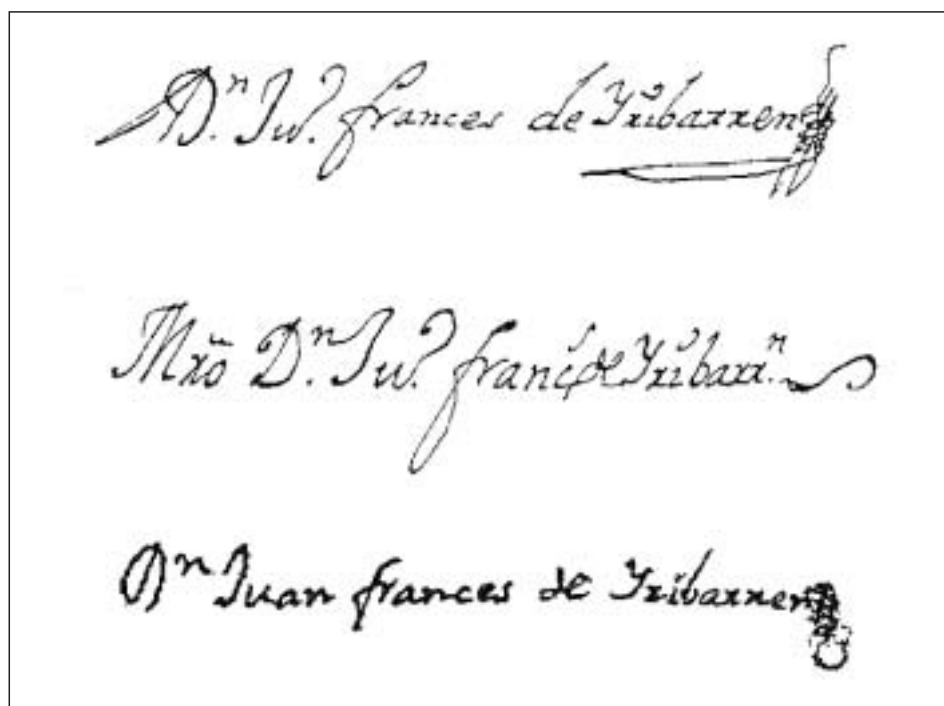 Dn. Ju.n frances de Yribarren
Mro Dn. Ju.n francs de Yribarr.n
Dn Juan frances de Yribarren